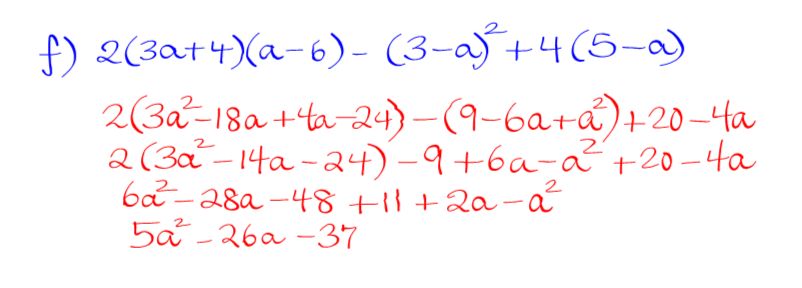 f) 2(3a+4)(a-6) - (3-a)²+4(5-a)
2(3a²-18a+4a-24)-(9-6a+a²)+20-4a
2(3a²-14a-24)-9+6a-a²+20-4a
6a²-28a-48+11+2a-a²
5a²-26a-37